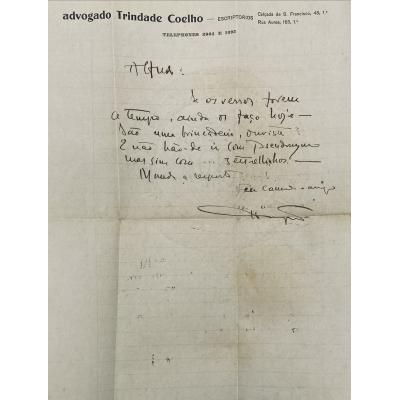 advogado Trindade Coelho — ESCRIPTORIOS
Calçada de S. Francisco, 48, 1.º
Rua Aurea, 165, 1.º
TELEPHONES 2964 E 3292
Se os versos forem
a tempo, ainda os faço hoje —
São uma brincadeira, ouviste?
E não hão-de ir com pseudonymo
mas sim com 3 estrellinhas! —
Manda a resposta
Teu camarada e amigo